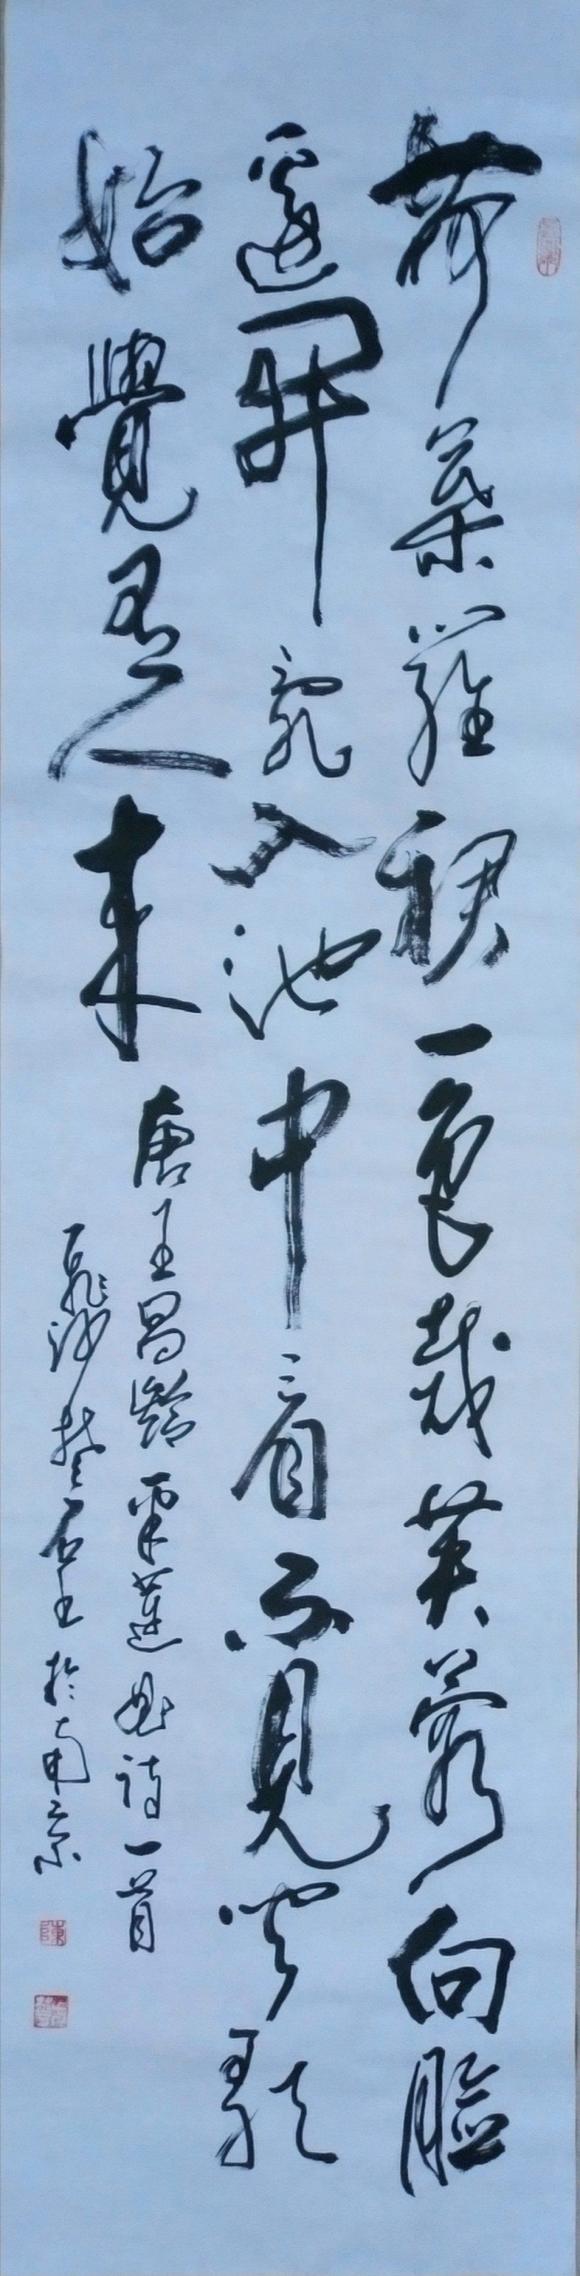 荷葉羅裙一色裁芙蓉向臉
兩邊開亂入池中看不見聞歌
始覺有人來
唐王昌齡采蓮曲詩一首
於南京